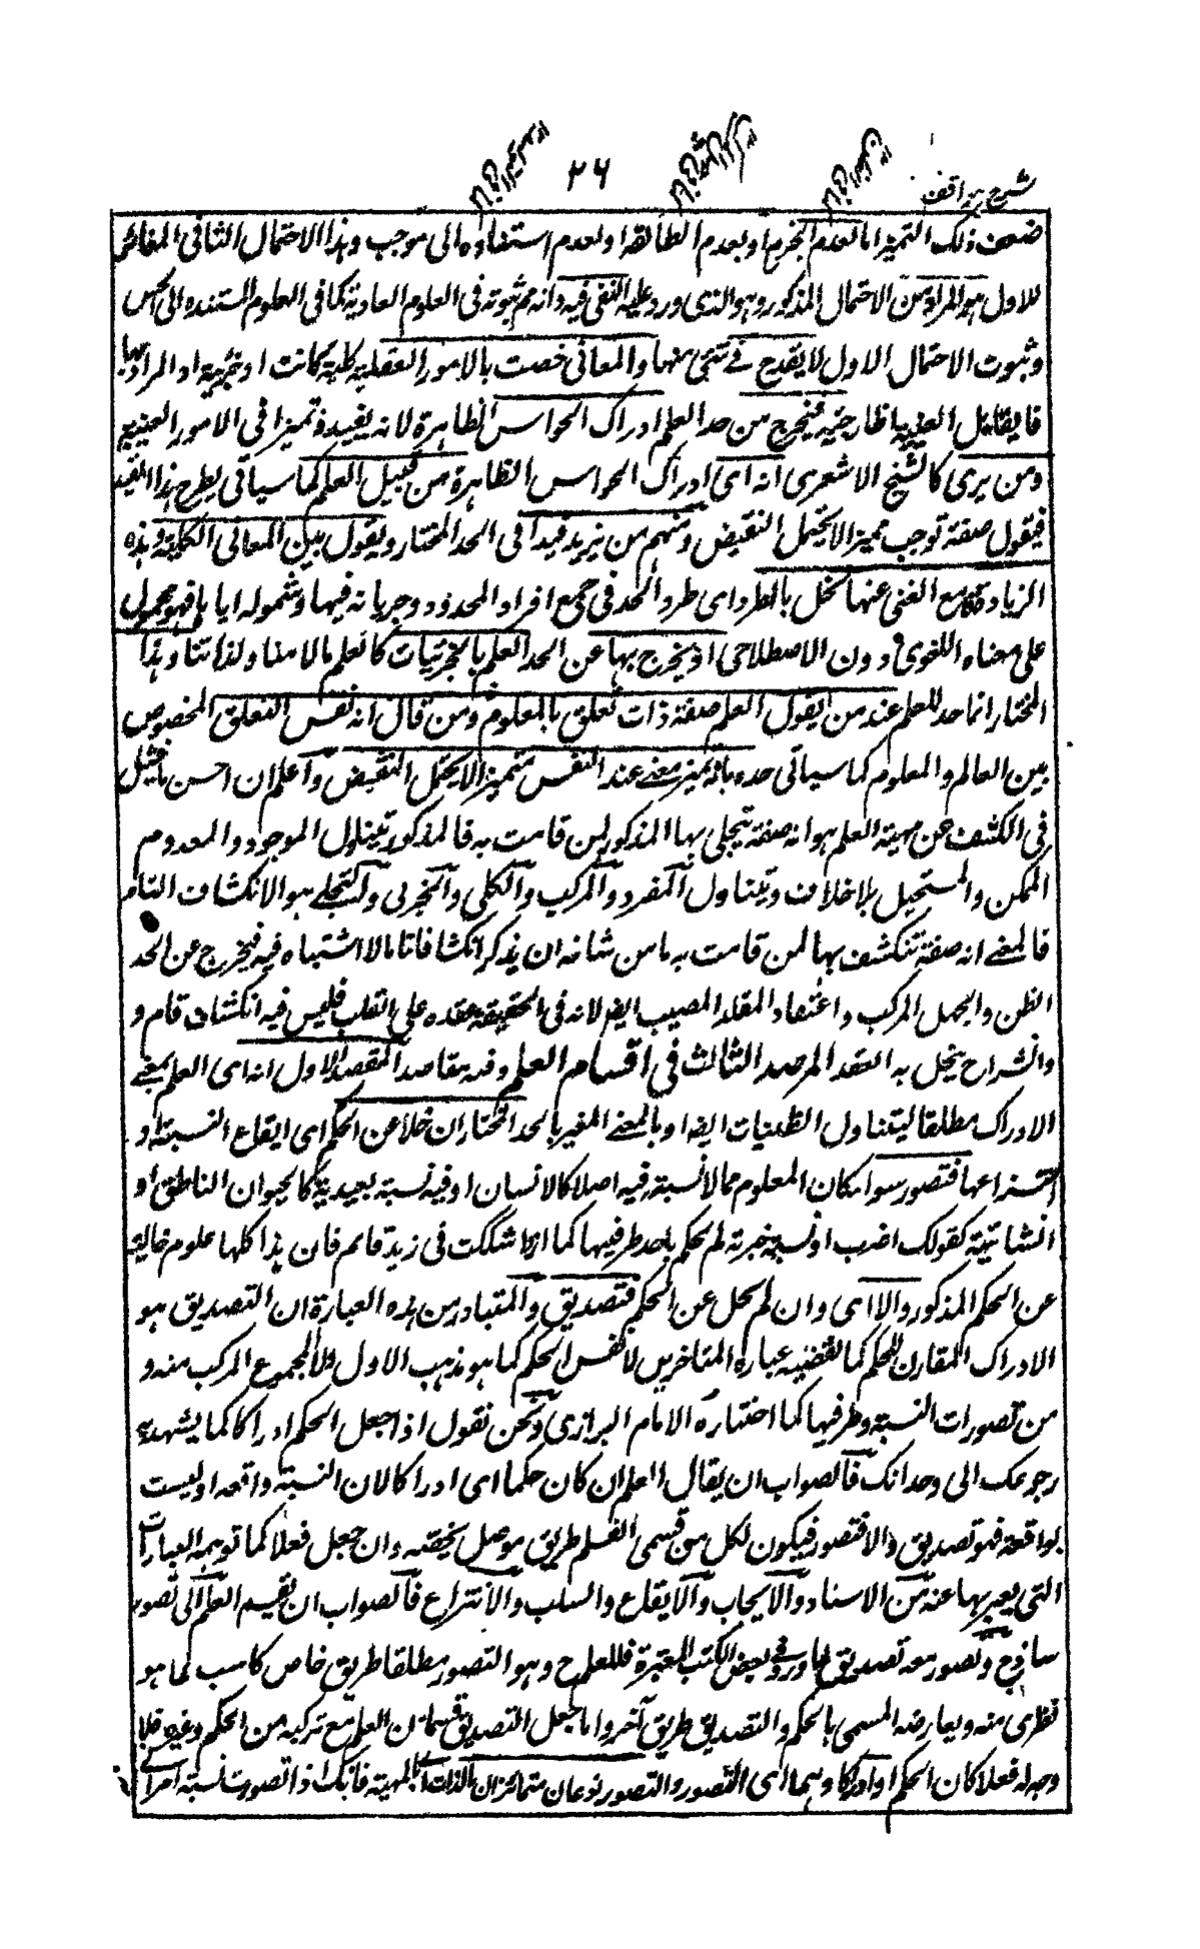 شرح مواقف
٢٦
ضعف ذلك التميز اما لعدم الجزم او بعدم المطابقة او لعدم استناده الى موجب وهذا الاحتمال الثانى المغائر
للاول هو المراد من الاحتمال المذكور وهو الذى ورد عليه النفى فيه وانه ثم ثبوته فى العلوم العادية كما فى العلوم المستندة الى الحس
وثبوت الاحتمال الاول لا يقدح فى شئ منها والمعانى خصت بالامور العقلية كلية كانت او جزئية او المراد بها
ما يقابل العينية الخارجية فيخرج من حد العلم ادراك الحواس الظاهرة لانه يفيد تميزا فى الامور العينية
ومن يرى كالشيخ الاشعرى انه اى ادراك الحواس الظاهرة من قبيل العلم كما سياتى يطرح هذا القيد
فيقول صفة توجب تمييزا لا يحتمل النقيض ومنهم من يزيد قيدا فى الحد المختار ويقول بين المعانى الكلية وهذه
الزيادة مع الغنى عنها تخل بالطرد اى طرد الحد فى جميع افراد المحدود وجريانه فيها وشموله اياها فهو محمول
على معناه اللغوى دون الاصطلاحى اذ يخرج بها عن الحد العلم بالجزئيات كالعلم بالامنا ولذاتنا وهذا
المختار انما حد للعلم عند من يقول العلم صفة ذات تعلق بالمعلوم ومن قال انه نفس التعلق المخصوص
بين العالم والمعلوم كما سياتى حده بانه تميز معنى عند النفس تميزا لا يحتمل النقيض واعلم ان احسن ما قيل
فى الكشف عن مهية العلم هو انه صفة يتجلى بها المذكور لمن قامت به فالمذكور يتناول الموجود والمعدوم
الممكن والمستحيل بلا خلاف ويتناول المفرد والمركب والكلى والجزئى والتجلى هو الانكشاف التام
فالمعنى انه صفة تنكشف بها لمن قامت به ما من شانه ان يذكر انكشافا تاما لا اشتباه فيه فيخرج عن الحد
الظن والجهل المركب واعتقاد المقلد المصيب ايضا لانه فى الحقيقة عقدة على القلب فليس فيه انكشاف تام و
وانشراح ينحل به العقد المرصد الثالث فى اقسام العلم وفيه مقاصد المقصد الاول انه اى العلم بمعنى
الادراك مطلقا ليتناول الظنيات ايضا او بالمعنى المفسر بالحد المختار ان خلا عن الحكم اى ايقاع النسبة او
انتزاعها فتصور سواء كان المعلوم مما لا نسبة فيه اصلا كالانسان او فيه نسبة تقييدية كالحيوان الناطق او
انشائية كقولك اضرب او نسبة خبرية لم يحكم باحد طرفيها كما اذا شككت فى زيد قائم فان هذا كلها علوم خالية
عن الحكم المذكور والا اى وان لم يخل عن الحكم فتصديق والمتبادر من هذه العبارة ان التصديق هو
الادراك المقارن للحكم كما تقتضيه عبارة المتاخرين لا نفس الحكم كما هو مذهب الاول ولا المجموع المركب منه و
من تصورات النسبة وطرفيها كما اختاره الامام الرازى ونحن نقول اذا جعل الحكم ادراكا كما يشهد به
رجوعك الى وجدانك فالصواب ان يقال العلم ان كان حكما اى ادراكا لان النسبة واقعة او ليست
بواقعة فهو تصديق والا فتصور فيكون لكل من قسمى العلم طريق موصل يخصه وان جعل فعلا كما توهمه العبارات
التى يعبر بها عنه من الاسناد والايجاب والايقاع والسلب والانتزاع فالصواب ان يقسم العلم الى تصور
ساذج وتصور معه تصديق كما ورد فى بعض الكتب المعتبرة فللعلم ح وهو التصور مطلقا طريق خاص كاسب لما هو
نظرى منه ويعارضه المسمى بالحكم والتصديق طريق آخر واما جعل التصديق قسما من العلم مع تركبه من الحكم وغيره فلا
وجه له فعلا كان الحكم او ادراكا وهما اى التصور والتصديق نوعان متمائزان بالذات اى بالمهية فانك اذا تصورت نسبة امر الى